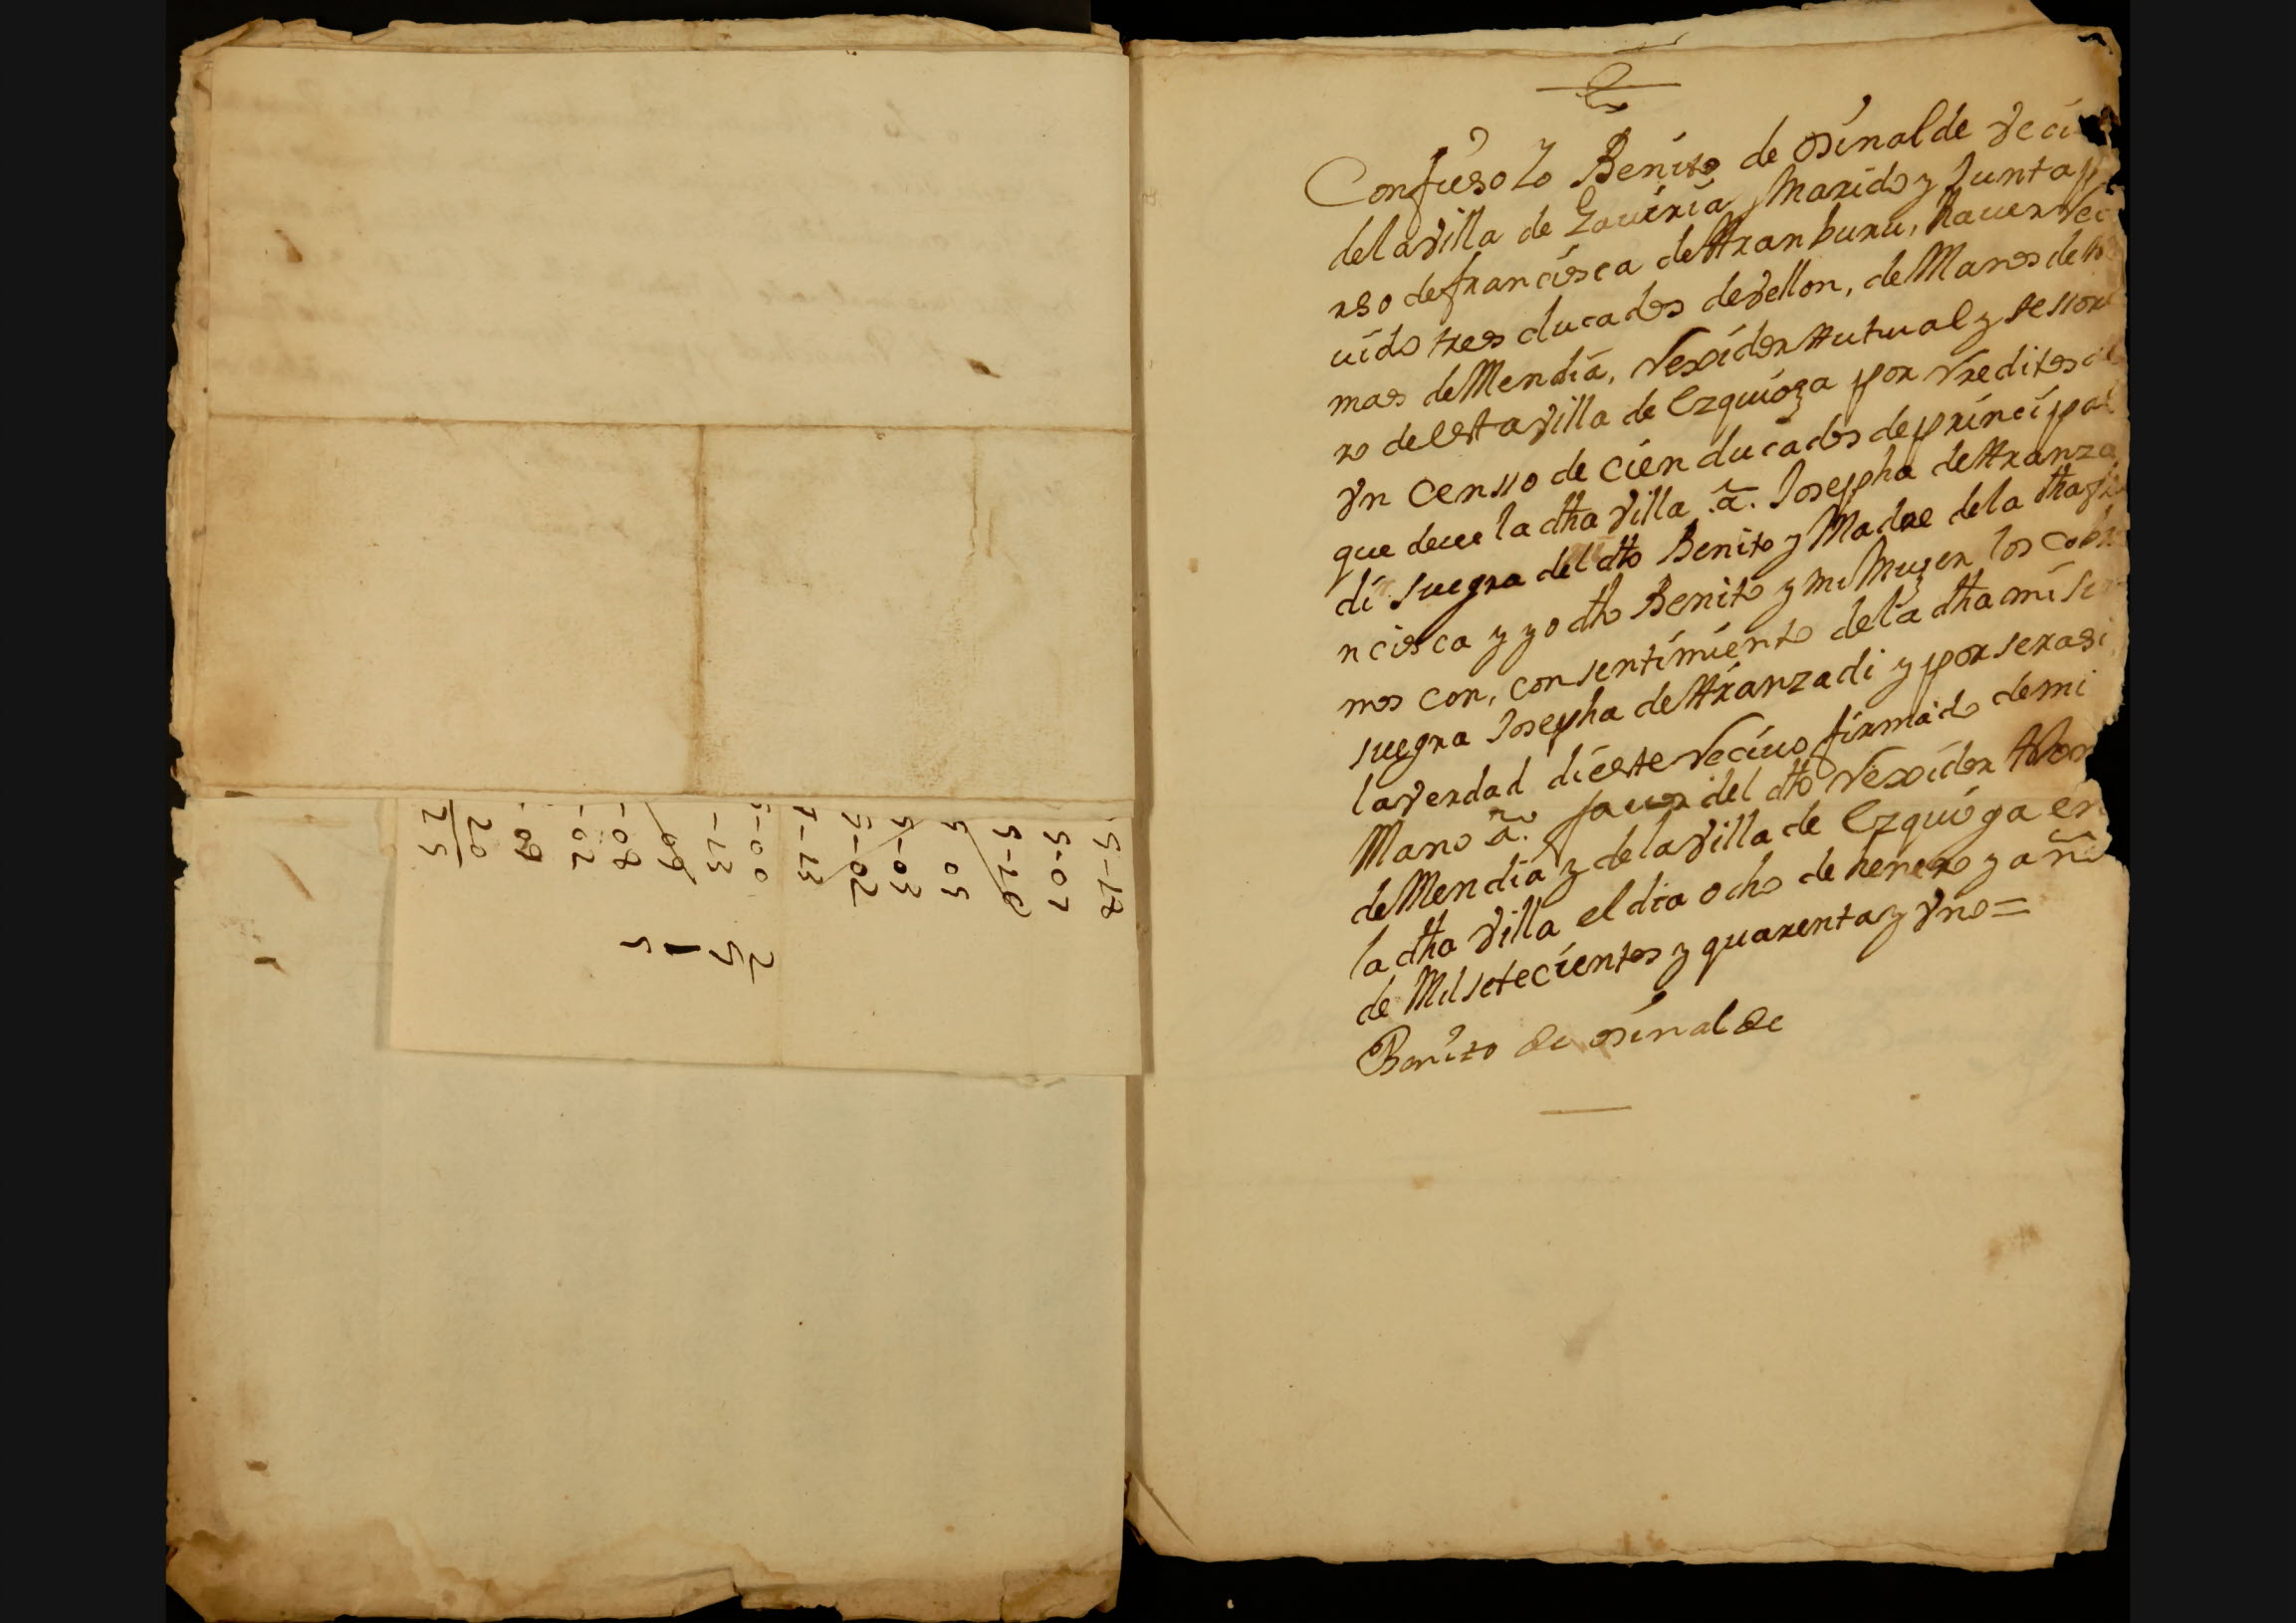 5-18
5-07
5-20
5 05
5-03
5-02
1-13
5-00
-13
09
-08
-02
-09
20
25
25
5
Confieso Yo Benito de osinalde veci
de la villa de Gaviria, Marido y Junta p
rso de francisca de Aranburu, haver Reci
uido tres ducados de vellon, de Manos de tho
mas de Mendia, Rexidor Actual y tessore
ro de esta villa de Ezquioga por Rreditos de
vn Censso de cien ducados de principal
que deue la dha villa .a. Josepha de Aranza
di suegra del dho Benito y Madre de la dha fra
ncisca y yo dho Benito y mi Muger los cobra
mos con, consentimiento de la dha mi su
suegra Josepha de Aranzadi y por ser asi
la verdad di este Reciuo firmado de mi
Mano a. fauor del dho Rexidor thom
de Mendia y de la villa de Ezquioga en
la dha villa el dia ocho de henero y año
de Mil setecientos y quarenta y vno=
Benito de osinalde